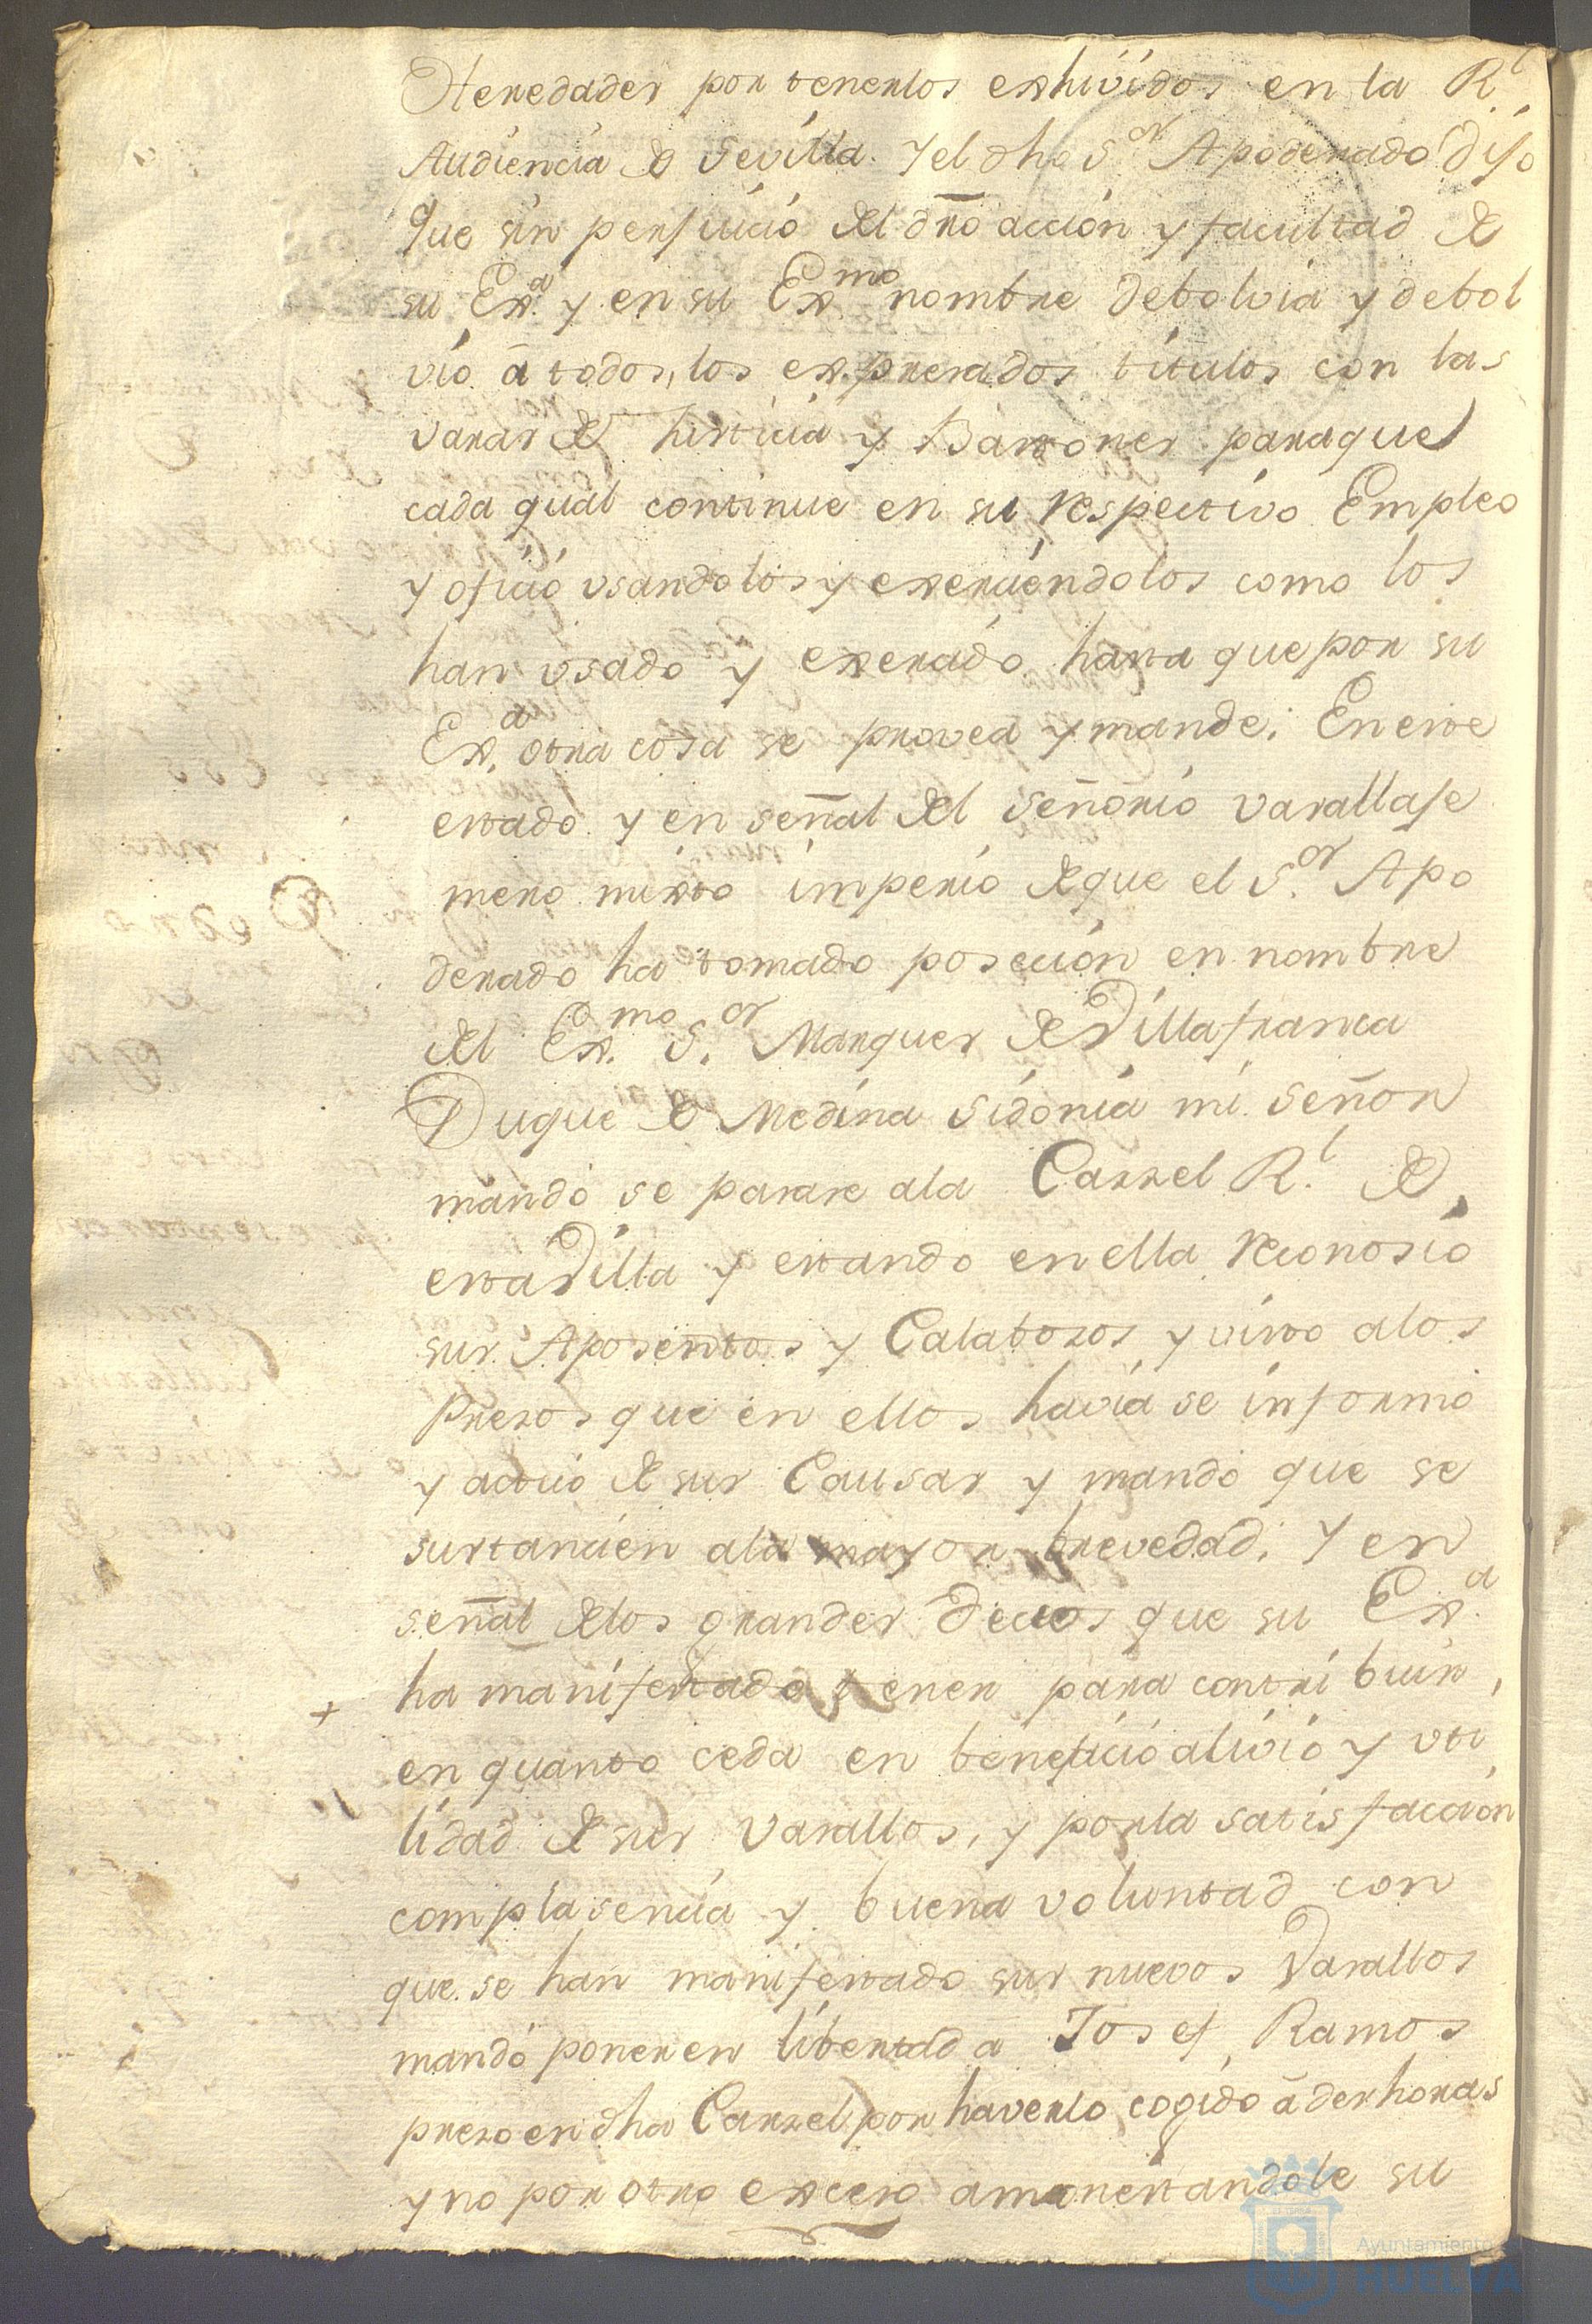 Heredades por tenerlos exhividos en la Rl.
Audiencia de Sevilla. Y el dho Sor. Apoderado dijo
que sin perjuicio del dro accion y facultad de
su Exa. y en su Exmo. nombre debolvia y debol
vio á todos, los expresados titulos con las
varas de Justicia y Bastones para que
cada qual continue en su respectivo Empleo
y oficio usandolos y exerciendolos como los
han usado y exercido hasta que por su
Exa. otra cosa se provea y mande. En este
estado y en señal del señorio vasallaje
mero mixto imperio de que el Sor. Apo
derado ha tomado posecion en nombre
del Exmo. Sor. Marques de Villafranca
Duque de Medina Sidonia mi señor
mandó se pasase a la Carzel Rl. de
esta Villa y estando en ella reconosio
sus Aposentos y Calabosos y visto a los
Presos que en ellos havia se informó
y actuó de sus Causas y mandó que se
sustancien a la mayor brevedad. Y en
señal de los grandes deceos que su Exa.
+ ha manifestado tener para contribuir,
en quanto ceda en beneficio alivio y uti
lidad de sus vasallos, y por la satisfaccion
complasencia y buena voluntad con
que se han manifestado sus nuevos Vasallos
mandó poner en libertad a Josef Ramos
preso en dha Carzel por haverlo cogido á deshoras
y no por otro exceso amonestandole su
Ayuntamiento
HUELVA